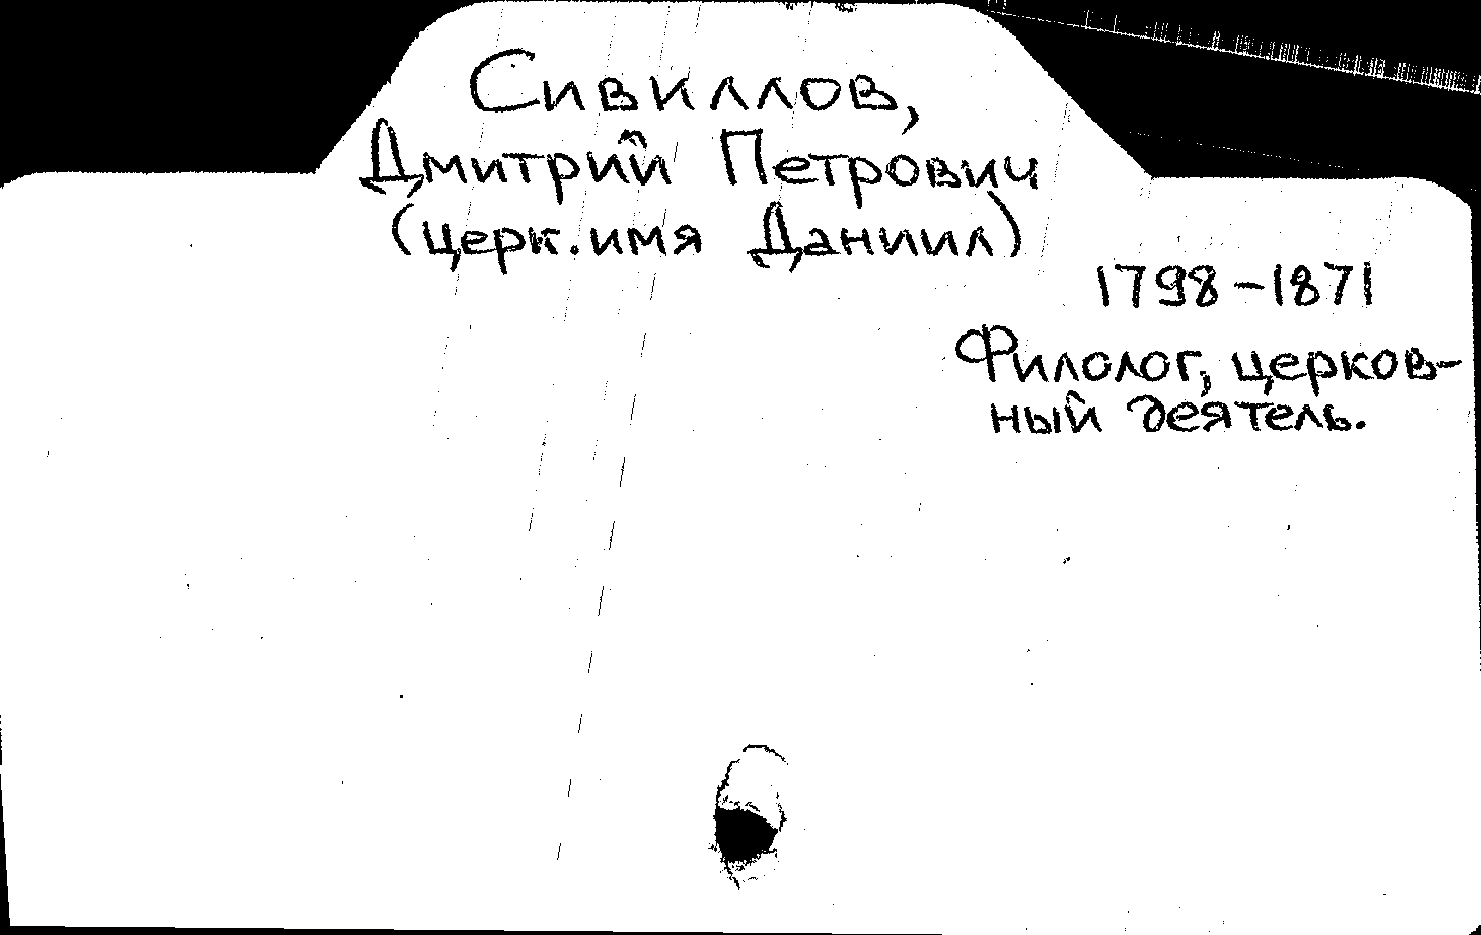 Сивиллов,
Дмитрий Петрович
(церк. имя Даниил)
1798-1871
Филолог, церков-
ный деятель.